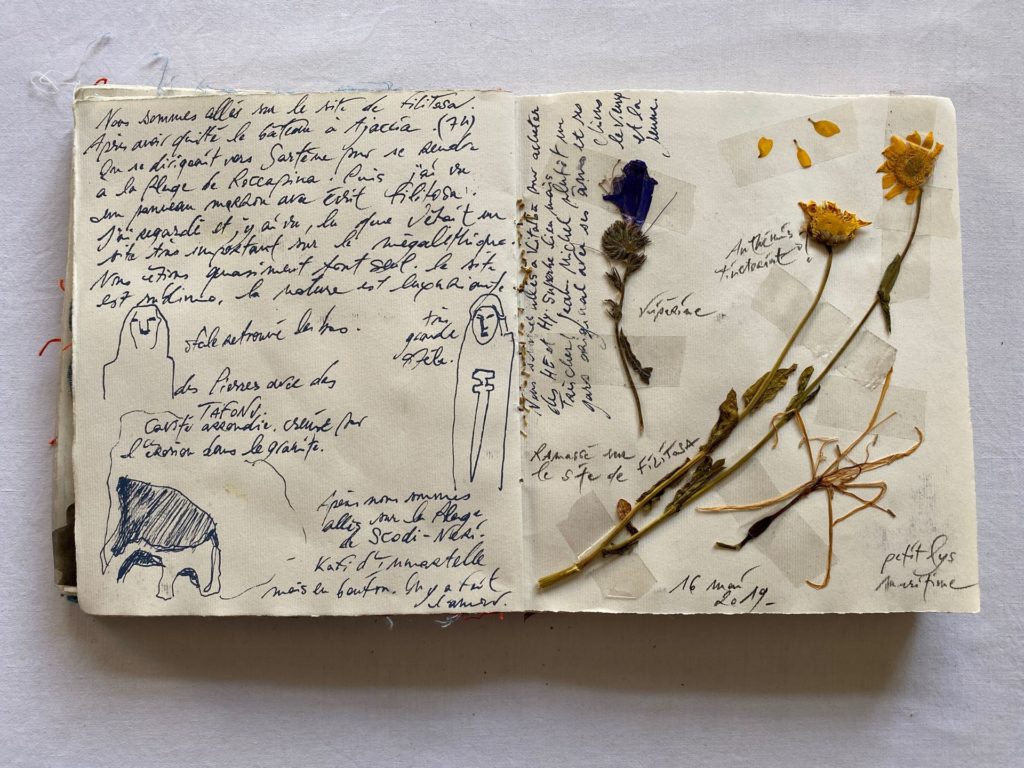 Nous sommes allés sur le site de Filitosa.
Après avoir quitté le bateau à Ajaccio. (7h)
On se dirigeait vers Sartène pour se rendre
à la Plage de Roccapina. Puis j'ai vu
un panneau marron avec écrit Filitosa.
J'ai regardé et j'y ai vu, que c'était un
site très important sur le mégalithique.
Nous étions quasiment tout seul le site
est sublime, la nature est luxuriante.
stèle retrouvé là bas.
très
grande
stèle.
des Pierres avec des
TAFONU.
Cavité arrondie. creusé par
l'érosion dans le granite.
Après nous sommes
allés sur la Plage
de SCODI-NERI.
mais en bouton. On y a fait
Nous sommes allés à pour acheter
des HE et Hy. Superbe lieu mais
Jean-Michel plutôt un
gars original avec ses ânes et se
chiens
le vieux
et la
jeune.
Anthémis
Vipérine
Ramassé sur
le site de FILITOSA
16 mai
2019-
petit lys
maritime